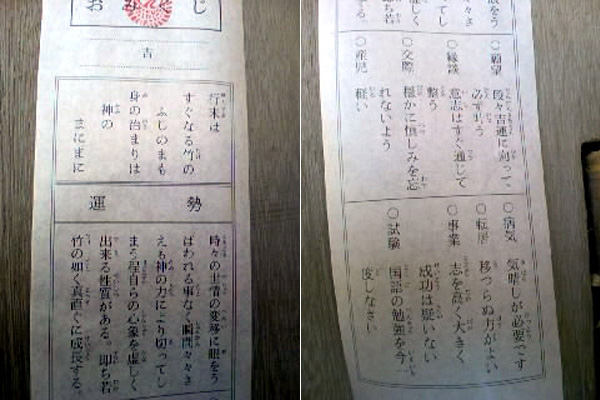 おみくじ
吉
行末は
すぐなる竹の
ふしのまも
身の治まりは
神の
まにまに
運勢
時々の世情の変移に眼をう
ばわれる事なく瞬間々々さ
えも神の力により切ってし
まう程自らの心象を虚しく
出来る性質がある。即ち若
竹の如く真直ぐに成長する。
○願望
段々吉運に向って、
必ず叶う
○縁談
意志はすぐ通じて
整う
○交際
穏かに慎しみを忘
れないよう
○産児
軽い
○病気
気晴しが必要です
○転居
移つらぬ方がよい
○事業
志を高く大きく
成功は疑いない
○試験
国語の勉強を今一
度しなさい